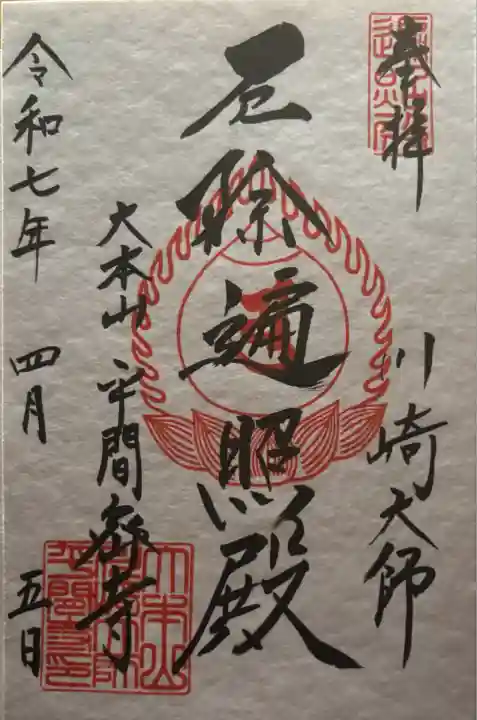 奉拝
川崎大師
厄除遍照殿
大本山 平間寺
令和七年 四月 五日